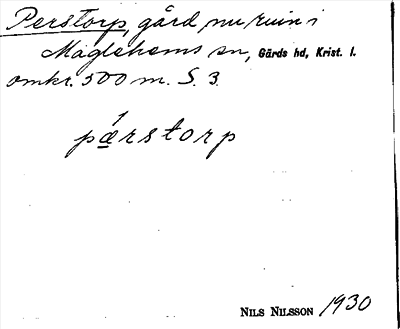 Perstorp, gård, nu ruin i
Maglehems sn, Gärds hd, Krist. l.
omkr. 500 m. S. 3.
pæ̀rstorp
NILS NILSSON 1930